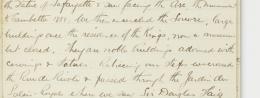 the Statue of Lafayette & saw facing the Arc the Monument
to Gambetta 1881. We then visited the Louvre, large
buildings once the residence of the Kings, now a museum
but closed. They are noble buildings adorned with
carvings & statues. Retracing our steps we crossed
the Rue de Rivoli & passed through the Jardin du
Palais-Royal where we saw Sir Douglas Haig